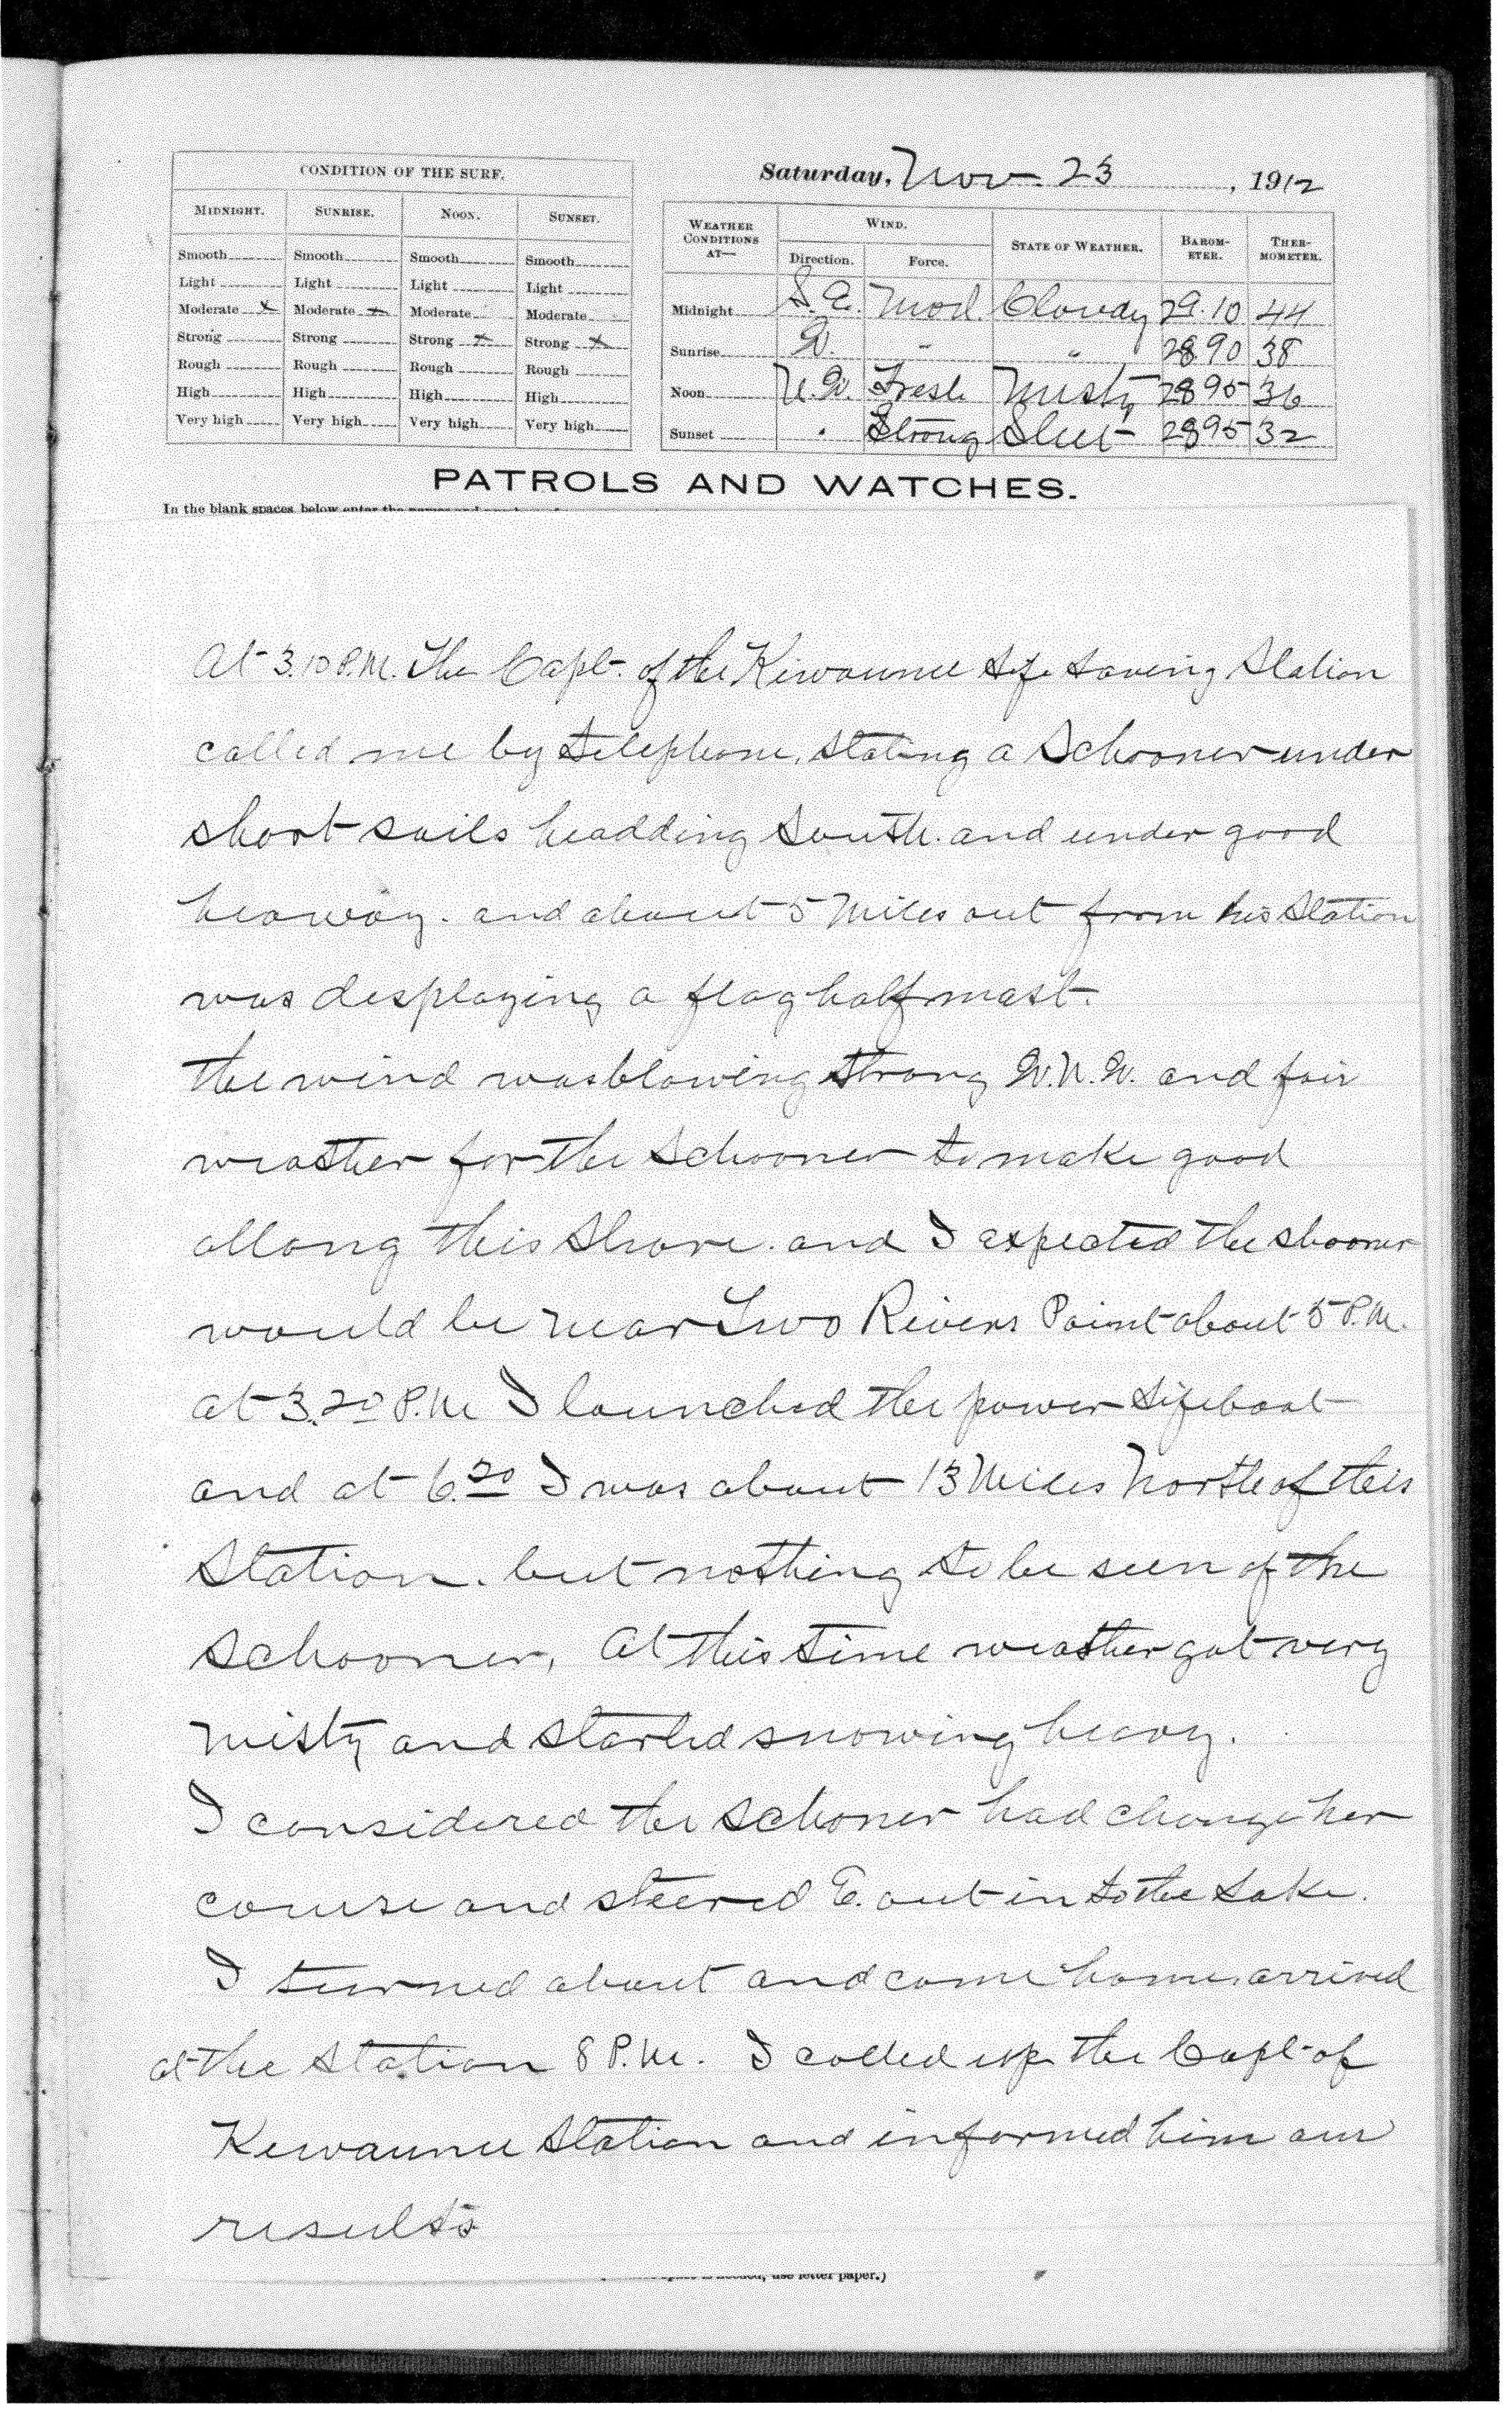 CONDITION OF THE SURF.
MIDNIGHT. SUNRISE. NOON. SUNSET.
Smooth Smooth Smooth Smooth
Light Light Light Light
Moderate x Moderate x Moderate Moderate
Strong Strong Strong x Strong x
Rough Rough Rough Rough
High High High High
Very high Very high Very high Very high
Saturday, Nov. 23, 1912
WEATHER CONDITIONS AT— WIND. STATE OF WEATHER. BAROMETER. THERMOMETER.
Direction. Force.
Midnight S.E. Mod. Cloudy 29.10 44
Sunrise W. " " 28.90 38
Noon N.W. Fresh Misty 28 95 36
Sunset " Strong Sleet 28 95 32
PATROLS AND WATCHES.
In the blank spaces below enter the
At 3.10 P.M. The Capt. of the Kiwaunee Life Saving Station
called me by telephone, stating a Schooner under
short sails headding South. and under good
heaway. and about 5 Miles out from his Station
was desplaying a flag half mast.
the wind was blowing strong W.N.W. and fair
weather for the Schooner to make good
allong this Shore. and I expected the shooner
would be near Two Rivers Point about 5 P.M.
at 3.20 P.M I launched the power Lifeboat
and at 6.20 I was about 13 Miles North of this
Station. but nothing to be seen of the
Schooner, At this time weather got very
misty and started snowing heavy.
I considered the Schoner had change her
course and steered E. out in to the Lake.
I turned about and come home. arrived
at the Station 8 P.M. I called up the Capt. of
Kewaunee Station and informed him our
results
use letter paper.)